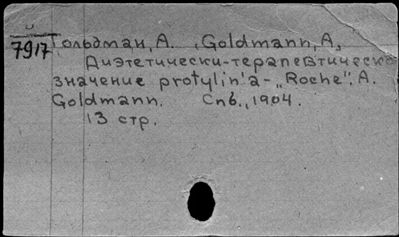 7917 Гольдман, А. , Goldmann, A,
Диэтетически-терапевтическое
значение protylin'a-„Roche", A.
Goldmann. Спб., 1904.
13 стр.